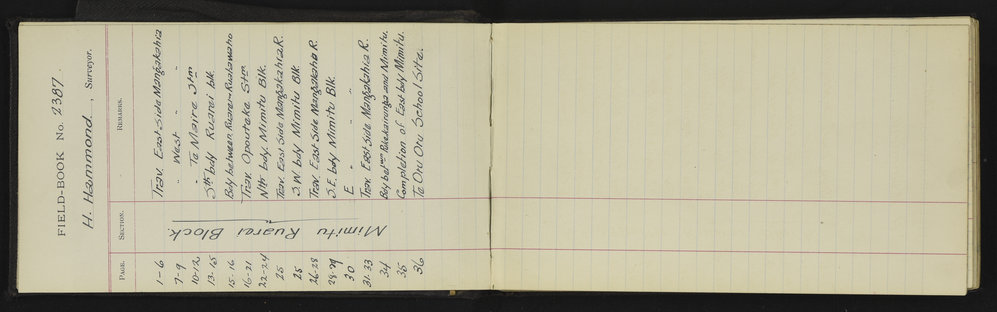 FIELD-BOOK No. 2387.
H. Hammond, Surveyor.
PAGE. SECTION. REMARKS.
Mimitu Ruarei Block
1-6 Trav. East Side Mangakahia
7-9 " West " "
10-12 " Te Maire Stm
13-15 Sth bdy Ruarei blk.
15-16 Bdy between Ruarei-Ruakawaho
16-21 Trav. Opouteke Stm
22-24 Nthr bdy. Mimitu Blk.
25 Trav. East Side Mangakahia R.
25 S.W. bdy Mimitu Blk
26-28 Trav. East Side Mangakahia R.
28-29 S.E. bdy Mimitu Blk.
30 E " " "
31-33 Trav. East Side Mangakahia R.
34 Bdy betwn and Mimitu.
35 Completion of East bdy Mimitu.
36 Te Oru Oru School Site.